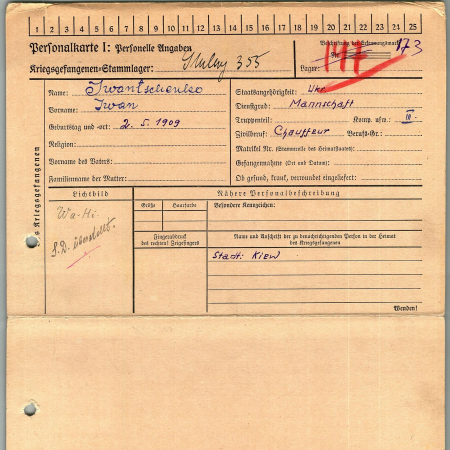 1 2 3 4 5 6 7 8 9 10 11 12 13 14 15 16 17 18 19 20 21 22 23 24 25
Personalkarte I: Personelle Angaben
Kriegsgefangenen-Stammlager: Stalag 355
Beschriftung der Erkennungsmarke
Nr. 173
Lager:
des Kriegsgefangenen
Name: Iwantschenko
Vorname: Iwan
Geburtstag und -ort: 2. 5. 1909
Religion:
Vorname des Vaters:
Familienname der Mutter:
Staatsangehörigkeit: Ukr.
Dienstgrad: Mannschaft
Truppenteil: Komp. usw.: III.
Zivilberuf: Chauffeur Berufs-Gr.:
Matrikel Nr. (Stammrolle des Heimatstaates):
Gefangennahme (Ort und Datum):
Ob gesund, krank, verwundet eingeliefert:
Lichtbild
Wa-Hi
S.D. überstellt.
Nähere Personalbeschreibung
Größe
Haarfarbe
Besondere Kennzeichen:
Fingerabdruck
des rechten! Zeigefingers
Name und Anschrift der zu benachrichtigenden Person in der Heimat
des Kriegsgefangenen
Stadt: Kiew
Wenden!